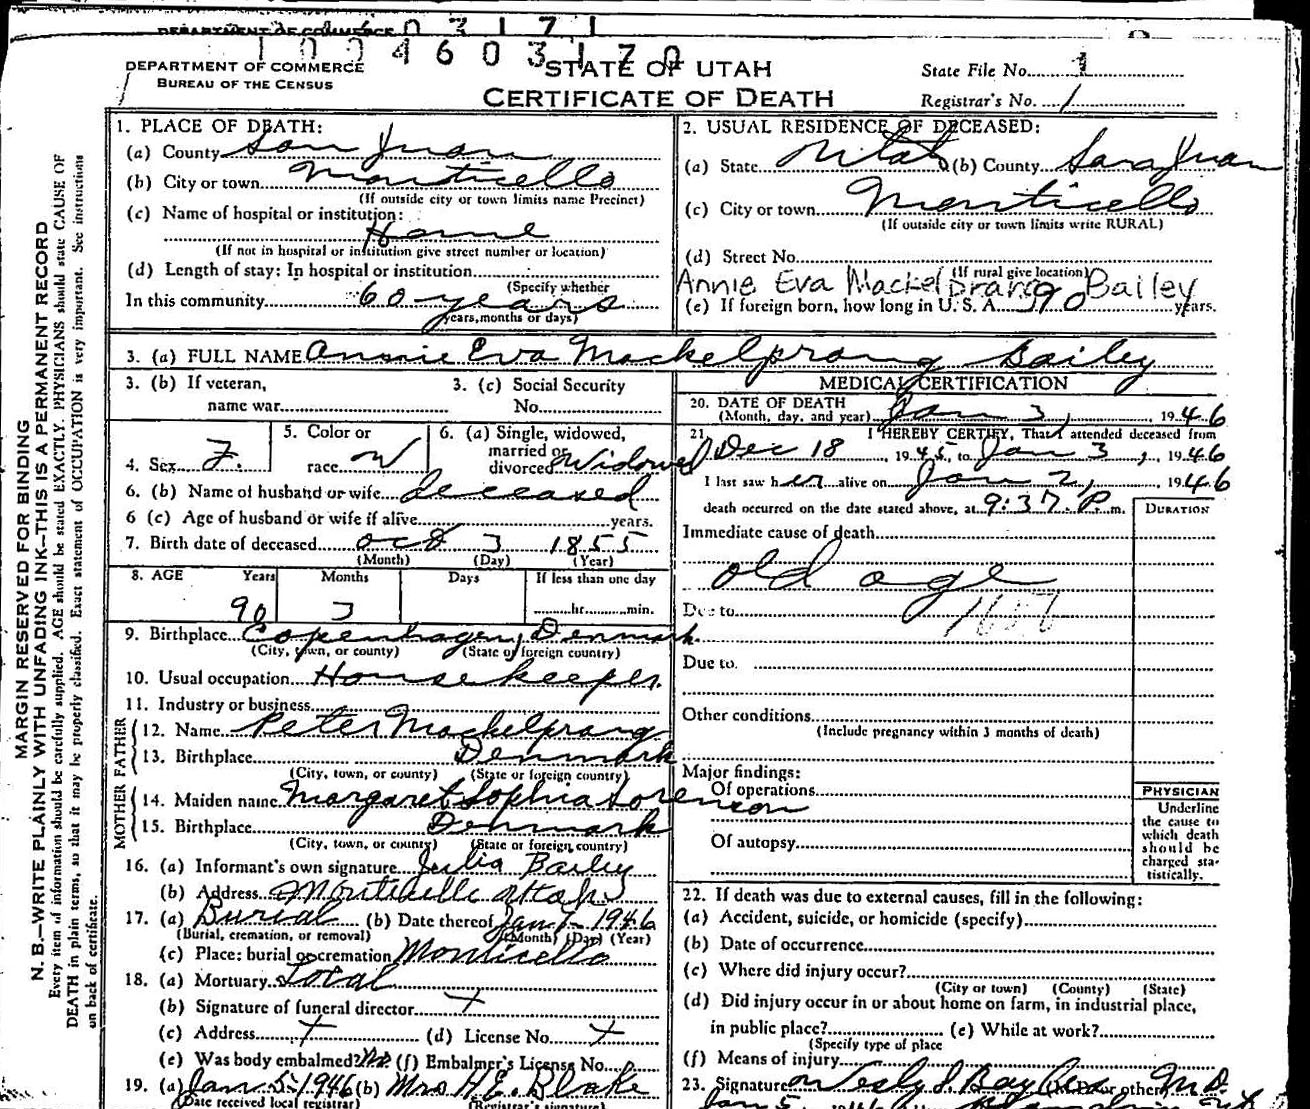 DEPARTMENT OF COMMERCE 0 3 1 7 1
1 0 0 4 6 0 3 1 7 0
DEPARTMENT OF COMMERCE
BUREAU OF THE CENSUS
STATE OF UTAH
CERTIFICATE OF DEATH
State File No. 1
Registrar's No. 1
MARGIN RESERVED FOR BINDING
N. B.—WRITE PLAINLY WITH UNFADING INK—THIS IS A PERMANENT RECORD
Every item of information should be carefully supplied. AGE should be stated EXACTLY. PHYSICIANS should state CAUSE OF
DEATH in plain terms, so that it may be properly classified. Exact statement of OCCUPATION is very important. See instructions
on back of certificate.
1. PLACE OF DEATH:
(a) County San Juan
(b) City or town Monticello
(If outside city or town limits name Precinct)
(c) Name of hospital or institution:
Home
(If not in hospital or institution give street number or location)
(d) Length of stay: In hospital or institution
(Specify whether
In this community 60 years
years, months or days)
2. USUAL RESIDENCE OF DECEASED:
(a) State Utah (b) County San Juan
(c) City or town Monticello
(If outside city or town limits write RURAL)
(d) Street No.
(If rural give location)
Annie Eva Mackelprang Bailey
(e) If foreign born, how long in U. S. A. 90 years.
3. (a) FULL NAME Annie Eva Mackelprang Bailey
3. (b) If veteran,
name war
3. (c) Social Security
No.
4. Sex F.
5. Color or
race W
6. (a) Single, widowed,
married or
divorced Widowed
6. (b) Name of husband or wife deceased
6 (c) Age of husband or wife if alive years.
7. Birth date of deceased Oct 3 1855
(Month) (Day) (Year)
8. AGE Years Months Days If less than one day
90 3 hr. min.
9. Birthplace Copenhagen, Denmark
(City, town, or county) (State or foreign country)
10. Usual occupation Housekeeper
11. Industry or business
FATHER
12. Name Peter Mackelprang
13. Birthplace Denmark
(City, town, or county) (State or foreign country)
MOTHER
14. Maiden name Margaret Sophia Sorenson
15. Birthplace Denmark
(City, town, or county) (State or foreign country)
16. (a) Informant's own signature Julia Bailey
(b) Address Monticello Utah
17. (a) Burial (b) Date thereof Jan 1946
(Burial, cremation, or removal) (Month) (Day) (Year)
(c) Place: burial or cremation Monticello
18. (a) Mortuary Local
(b) Signature of funeral director x
(c) Address x (d) License No. x
(e) Was body embalmed? No (f) Embalmer's License No.
19. (a) Jan 5-1946 (b) Mrs H.E. Blake
(Date received local registrar) (Registrar's signature)
MEDICAL CERTIFICATION
20. DATE OF DEATH
(Month, day, and year) Jan 3, 1946
21. I HEREBY CERTIFY, That I attended deceased from
Dec 18 1945, to Jan 3, 1946
I last saw her alive on Jan 2, 1946
death occurred on the date stated above, at 9:37 P. m.
DURATION
Immediate cause of death
old age
Due to
Due to
Other conditions
(Include pregnancy within 3 months of death)
Major findings:
Of operations
Of autopsy
PHYSICIAN
Underline
the cause to
which death
should be
charged sta-
tistically.
22. If death was due to external causes, fill in the following:
(a) Accident, suicide, or homicide (specify)
(b) Date of occurrence
(c) Where did injury occur?
(City or town) (County) (State)
(d) Did injury occur in or about home on farm, in industrial place,
in public place? (e) While at work?
(Specify type of place
(f) Means of injury
23. Signature (M.D. or other) M.D.
Jan 5